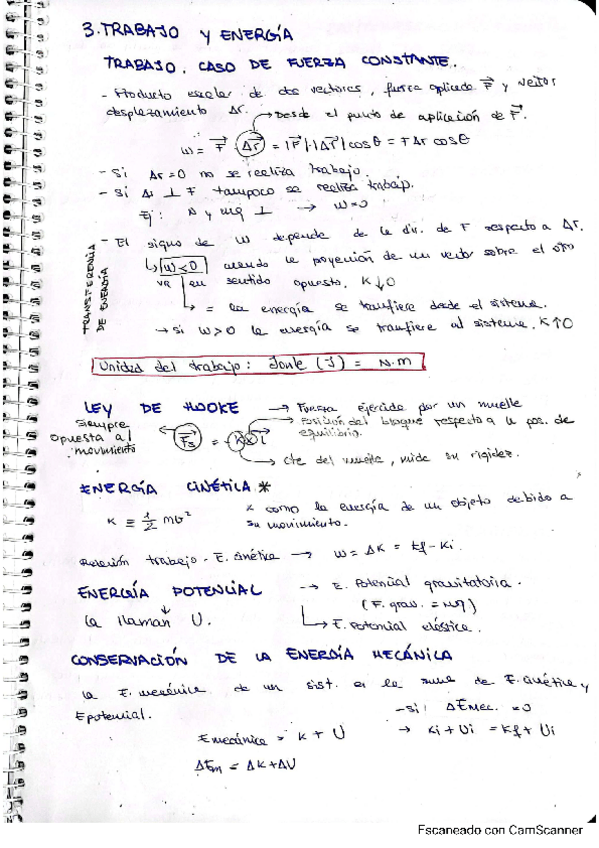 3. TRABAJO Y ENERGÍA
TRABAJO. CASO DE FUERZA CONSTANTE.
- Producto escalar de dos vectores, fuerza aplicada F⃗ y vector
desplazamiento Δr. → Desde el punto de aplicación de F⃗.
W = F⃗ · Δr⃗ = |F⃗|·|Δr⃗| cos θ = F Δr cos θ
- Si Δr = 0 no se realiza trabajo.
- Si Δr ⊥ F tampoco se realiza trabajo.
Ej: N y mg ⊥ → W=0
TRANSFERENCIA DE ENERGÍA
- El signo de W depende de la dir. de F respecto a Δr.
↳ W<0 cuando la proyección de un vector sobre el otro
va en sentido opuesto. K↓0
↳ = la energía se transfiere desde el sistema.
→ si W>0 la energía se transfiere al sistema. K↑0
Unidad del trabajo: Joule (J) = N·m
LEY DE HOOKE → Fuerza ejercida por un muelle
Siempre opuesta al movimiento
Posición del bloque respecto a la pos. de equilibrio.
F⃗s = -Kxi
→ Cte del muelle, mide su rigidez.
ENERGÍA CINÉTICA *
K ≡ 1/2 mv²
* como la energía de un objeto debido a
su movimiento.
Relación trabajo - E. cinética → W = ΔK = Kf - Ki.
ENERGÍA POTENCIAL → E. Potencial gravitatoria.
(F. grav. = mg)
la llaman U. ↳ E. Potencial elástica.
CONSERVACIÓN DE LA ENERGÍA MECÁNICA
la E. mecánica de un sist. es la suma de E. cinética y
E potencial.
- si: ΔEmec. = 0
Emecánica = K + U → Ki + Ui = Kf + Ui
ΔEm = ΔK + ΔU
Escaneado con CamScanner